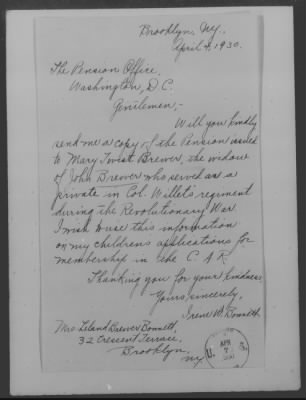 Brooklyn, N.Y.,
April 4, 1930.
The Pension Office,
Washington, D.C.
Gentlemen,-
Will you kindly
send me a copy of the Pension issued
to Mary Twist Brewer, the widow
of John Brewer who served as a
private in Col. Willet's regiment
during the Revolutionary War.
I wish to use this information
on my children's applications for
membership in the C.A.R.
Thanking you for your kindness,
Yours sincerely,
Irene W. Bonnett.
Mrs. Leland Brewer Bonnett,
32 Crescent Terrace,
Brooklyn,
N.Y.
U. S.
APR
7